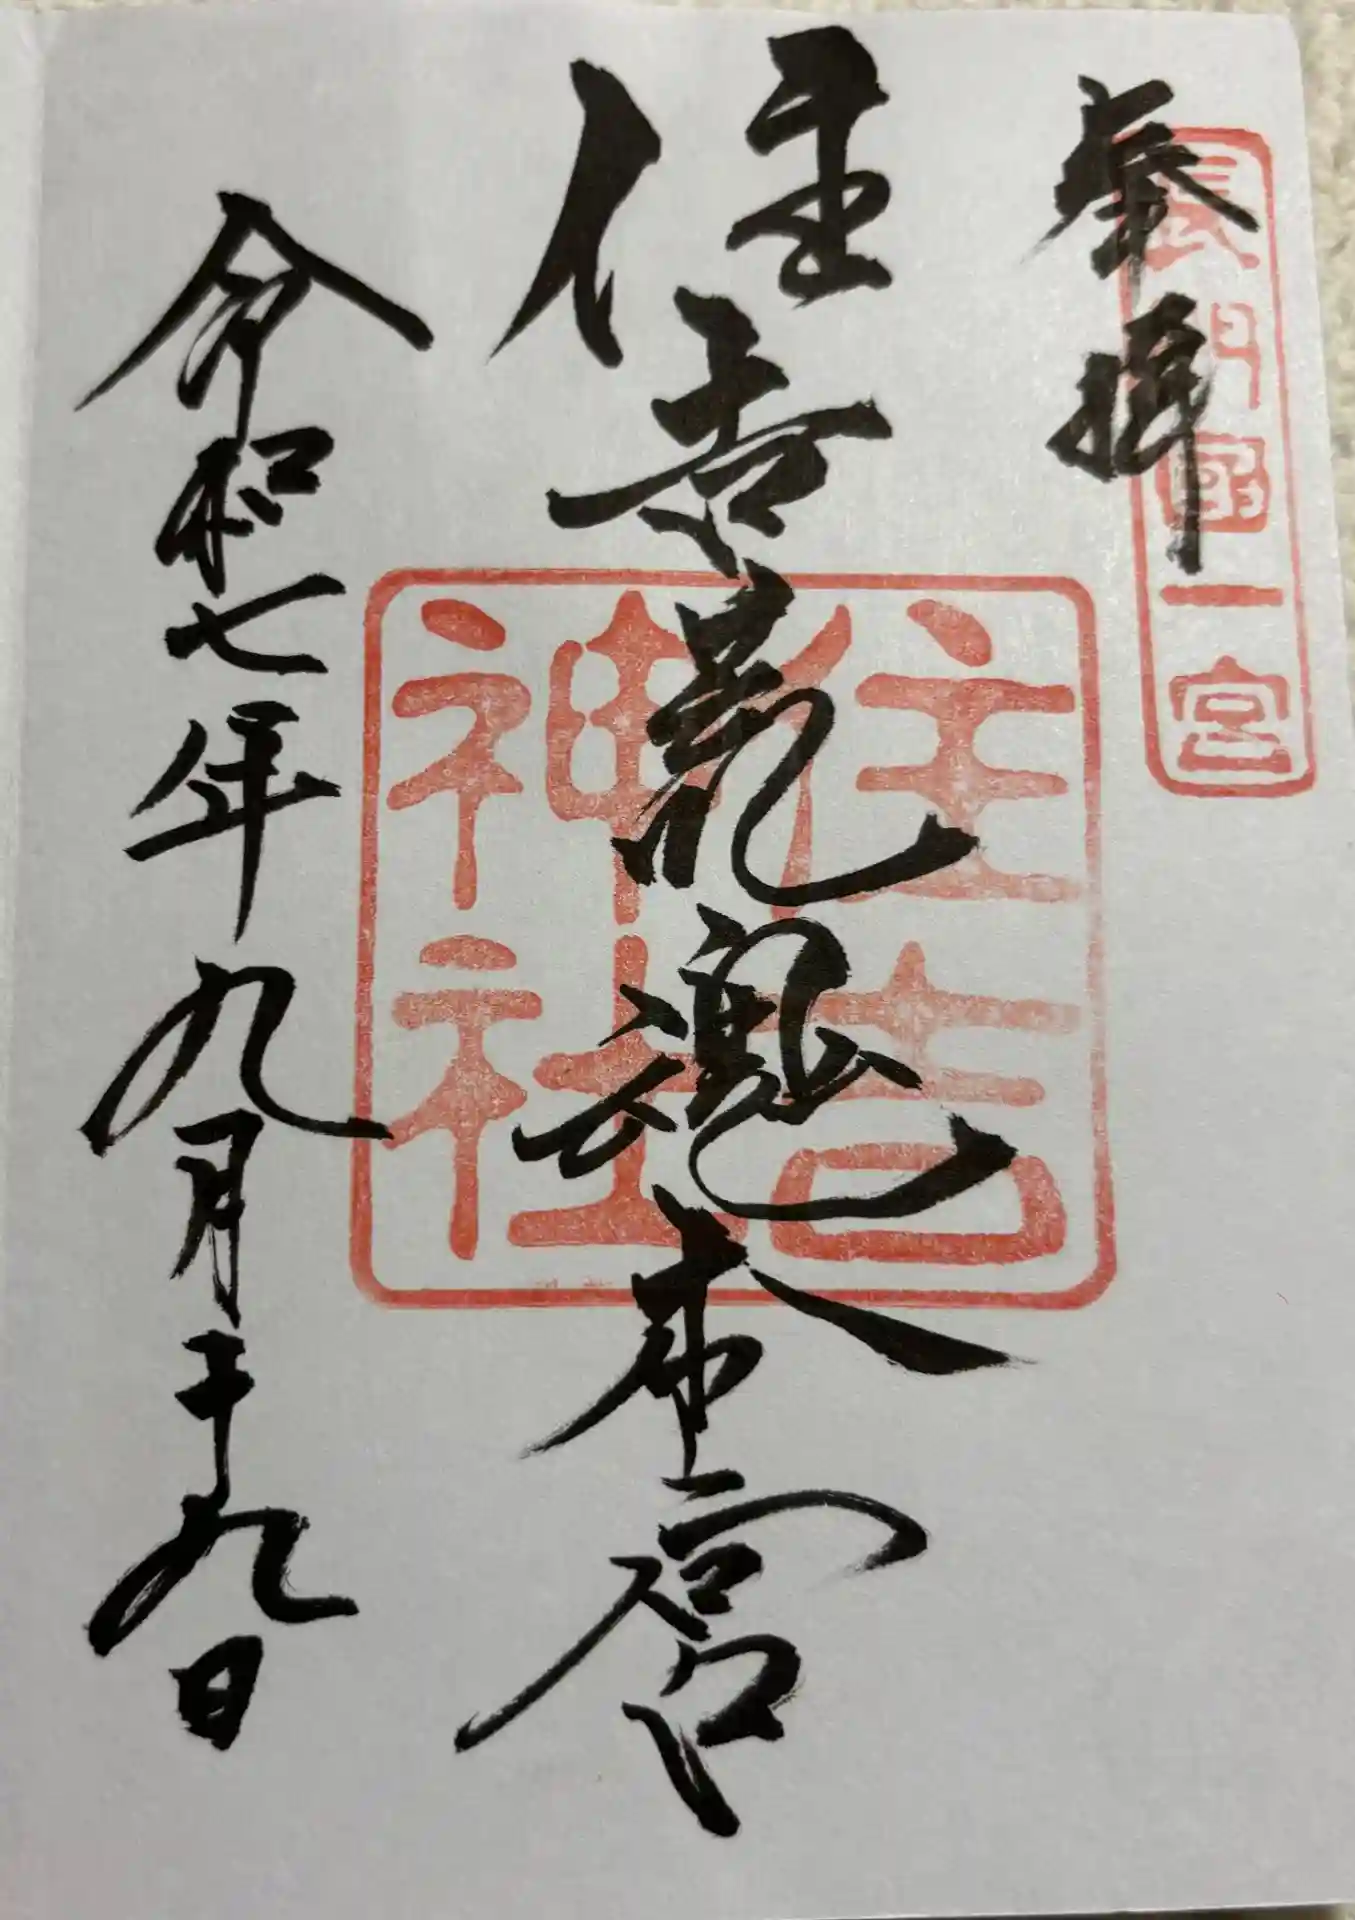 奉拝
長門國一宮
住吉荒魂本宮
住吉神社
令和七年九月十九日